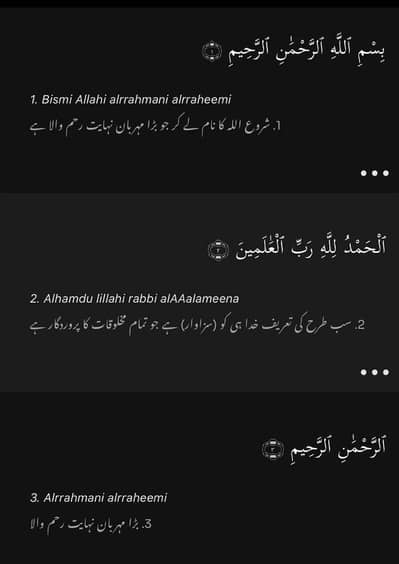 بِسْمِ ٱللَّهِ ٱلرَّحْمَٰنِ ٱلرَّحِيمِ ١
1. Bismi Allahi alrrahmani alrraheemi
1. شروع اللہ کا نام لے کر جو بڑا مہربان نہایت رحم والا ہے
ٱلْحَمْدُ لِلَّهِ رَبِّ ٱلْعَٰلَمِينَ ٢
2. Alhamdu lillahi rabbi alAAalameena
2. سب طرح کی تعریف خدا ہی کو (سزاوار) ہے جو تمام مخلوقات کا پروردگار ہے
ٱلرَّحْمَٰنِ ٱلرَّحِيمِ ٣
3. Alrrahmani alrraheemi
3. بڑا مہربان نہایت رحم والا